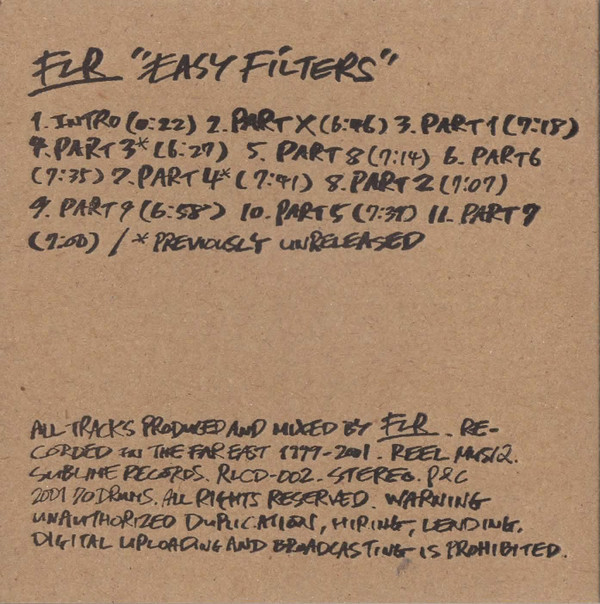 FLR "EASY FILTERS"
1. INTRO (0:22) 2. PART X (6:46) 3. PART 1 (7:18)
4. PART 3* (6:27) 5. PART 8 (7:14) 6. PART 6
(7:35) 7. PART 4* (7:41) 8. PART 2 (7:07)
9. PART 9 (6:58) 10. PART 5 (7:37) 11. PART 7
(7:00) / * PREVIOUSLY UNRELEASED
ALL TRACKS PRODUCED AND MIXED BY FLR. RE-
CORDED IN THE FAR EAST 1999-2001. REEL MUSIQ.
SUBLIME RECORDS. RLCD-002. STEREO. P&C
2001 70DRUMS. ALL RIGHTS RESERVED. WARNING
UNAUTHORIZED DUPLICATION, HIRING, LENDING,
DIGITAL UPLOADING AND BROADCASTING IS PROHIBITED.